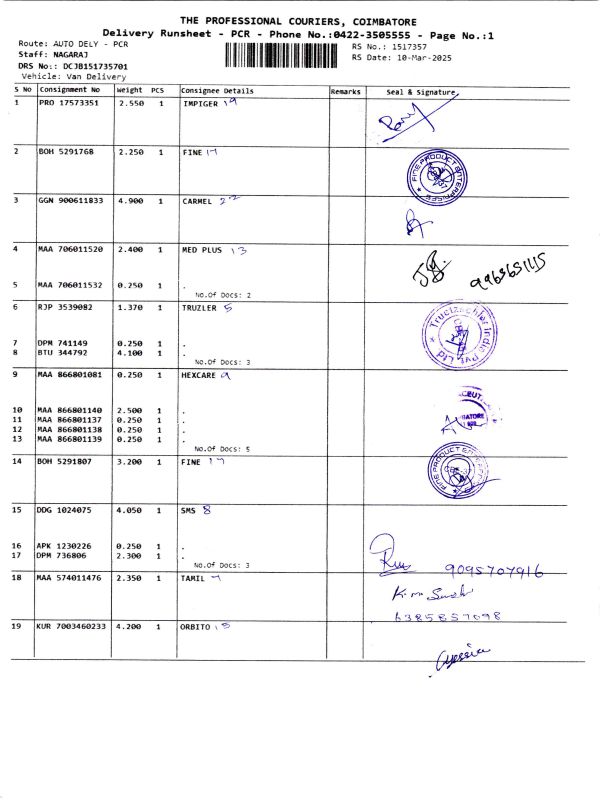 THE PROFESSIONAL COURIERS, COIMBATORE
Delivery Runsheet - PCR - Phone No.:0422-3505555 - Page No.:1
Route: AUTO DELY - PCR
RS No.: 1517357
Staff: NAGARAJ
RS Date: 10-Mar-2025
DRS No.: DCJB151735701
Vehicle: Van Delivery
S No Consignment No Weight PCS Consignee Details Remarks Seal & Signature
1 PRO 17573351 2.550 1 IMPIGER 19
2 BOH 5291768 2.250 1 FINE 17
FINE PRODUCT ENTERPRISES
3 GGN 900611833 4.900 1 CARMEL 22
4 MAA 706011520 2.400 1 MED PLUS 13
5 MAA 706011532 0.250 1 .
No.Of Docs: 2
6 RJP 3539082 1.370 1 TRUZLER 5
7 DPM 741149 0.250 1 .
8 BTU 344792 4.100 1 .
No.Of Docs: 3
9 MAA 866801081 0.250 1 HEXCARE 9
10 MAA 866801140 2.500 1 .
11 MAA 866801137 0.250 1 .
12 MAA 866801138 0.250 1 .
13 MAA 866801139 0.250 1 .
No.Of Docs: 5
14 BOH 5291807 3.200 1 FINE 17
FINE PRODUCT ENTERPRISES
15 DDG 1024075 4.050 1 SMS 8
16 APK 1230226 0.250 1 .
17 DPM 736806 2.300 1 .
No.Of Docs: 3
9095707916
18 MAA 574011476 2.350 1 TAMIL 7
6385857098
19 KUR 7003460233 4.200 1 ORBITO 15